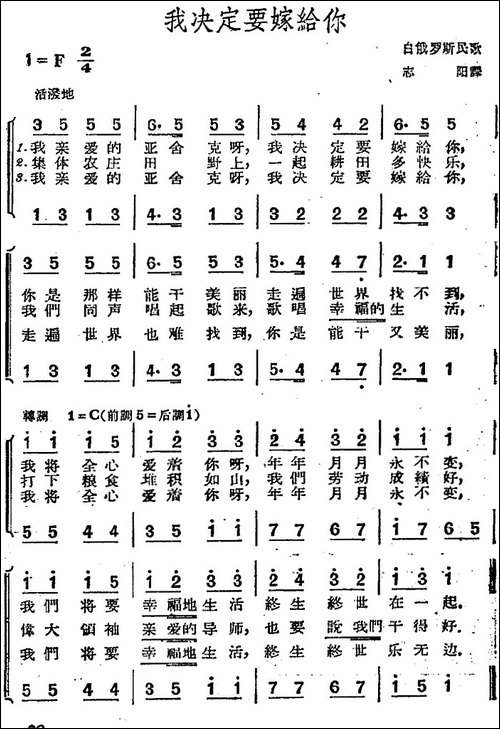 我决定要嫁給你
1=F 2/4
白俄罗斯民歌
志 阳譯
活泼地
3 5 5 5 6· 5 5 3 5 5 4 2 6· 5 5
1.我亲爱的亚舍克呀,我决定要嫁給你,
2.集体农庄田野上,一起耕田多快乐,
3.我亲爱的亚舍克呀,我决定要嫁給你,
1 3 1 3 4· 3 1 3 3 2 2 2 4· 3 3
3 5 5 5 6· 5 5 3 5· 4 4 7 2· 1 1
你是那样能干美丽走遍世界找不到,
我們同声唱起歌来,歌唱幸福的生活,
走遍世界也难找到,你是能干又美丽,
1 3 1 3 4· 3 1 3 5· 4 4 7 2· 1 1
轉調 1=C(前調5=后調i)
1 1 1 5 1 2 3 3 2 4 3 2 1 1 1
我将全心爱着你呀,年年月月永不变,
打下粮食堆积如山,我們劳动成績好,
我将全心爱着你呀,年年月月永不变,
5 5 4 4 3 5 1 1 7 7 6 7 1 7 6 5
1 1 1 5 1 2 3 3 2 4 3 2 1 3 1
我們将要幸福地生活終生終世在一起.
偉大領袖亲爱的导师,也要說我們干得好.
我們将要幸福地生活,終生終世乐无边.
5 5 4 4 3 5 1 1 7 7 6 7 1 5 1